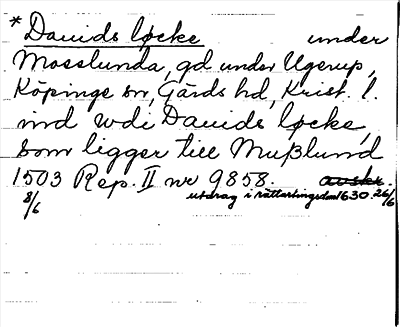 * Dauids løcke under
Mosslunda, gd under Ugerup,
Köpinge sn, Gärds hd, Krist. l.
ind wdi Dauids løcke,
som ligger till Mußlund
1503 Rep. II nr 9858. avskr.
8/6 utdrag i rättartingsdom 1630 26/6